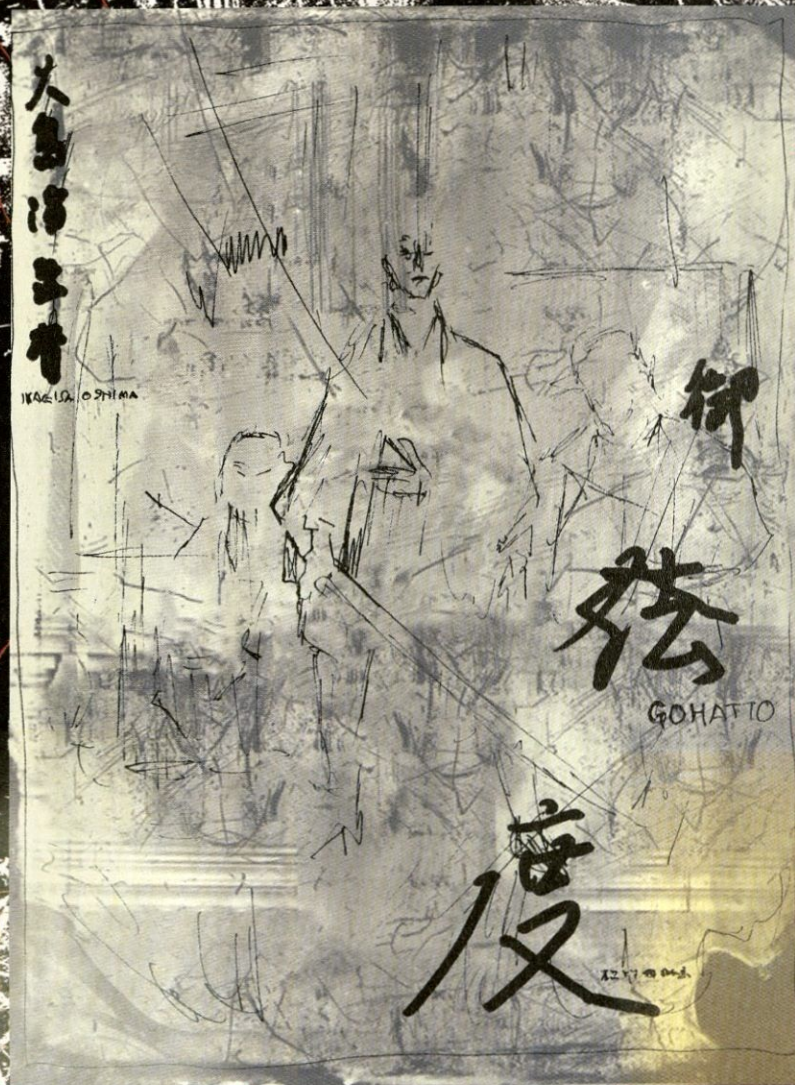 大島渚
NAGISA OSHIMA
御
法
GOHATTO
度